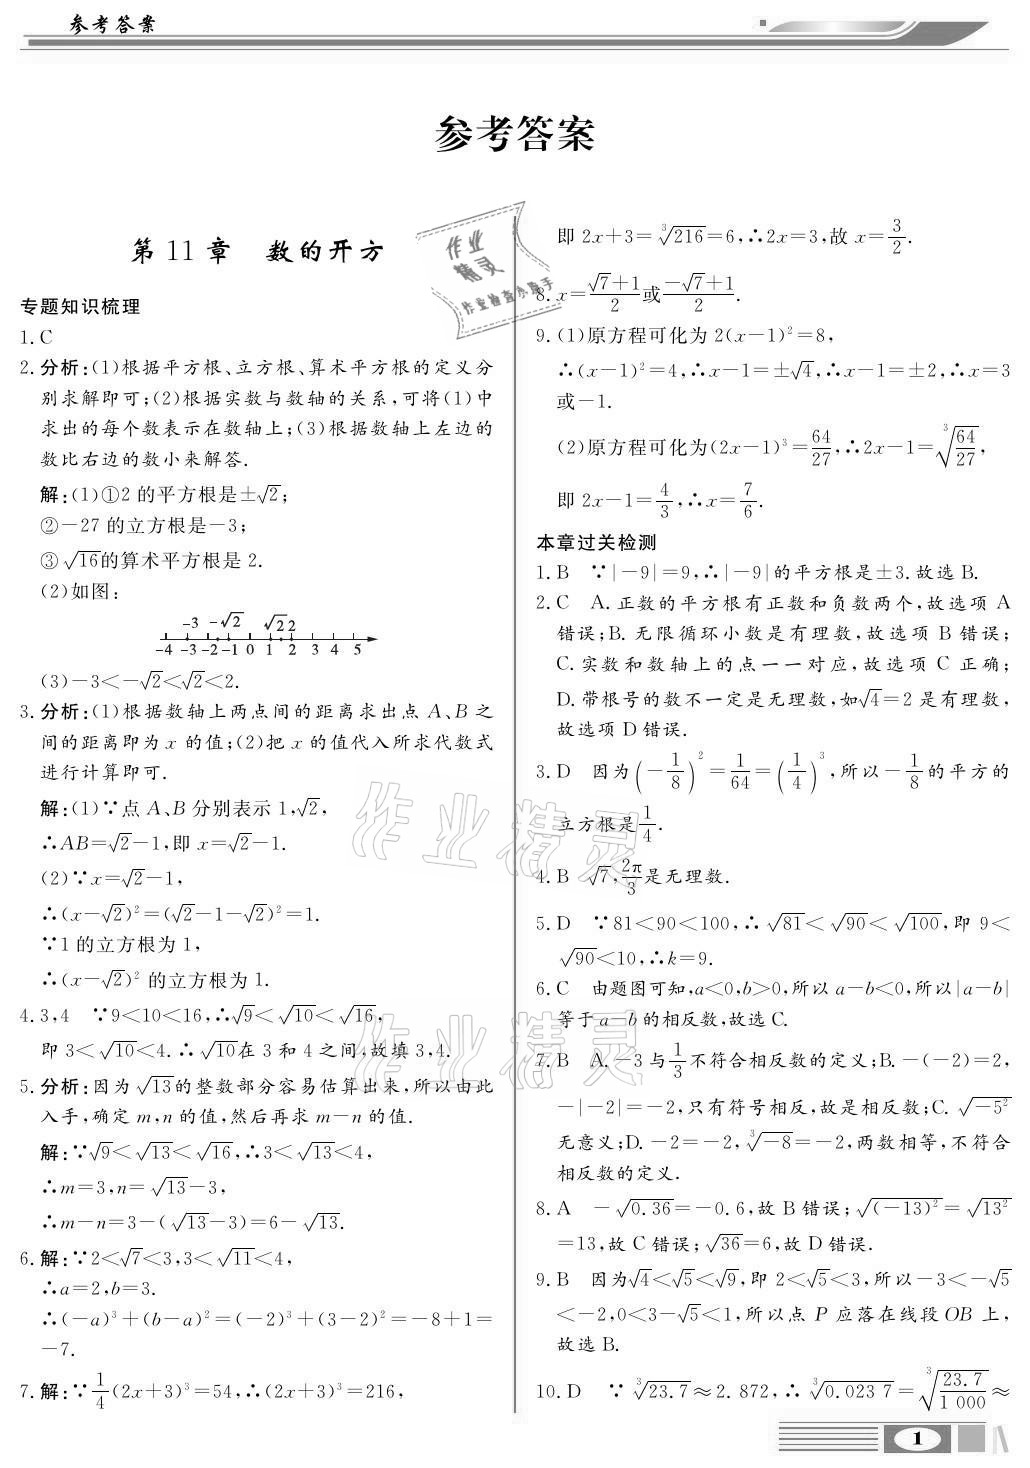 参考答案
参考答案
第 11 章　数的开方
专题知识梳理
1. C
2. 分析:(1)根据平方根、立方根、算术平方根的定义分
别求解即可;(2)根据实数与数轴的关系,可将(1)中
求出的每个数表示在数轴上;(3)根据数轴上左边的
数比右边的数小来解答.
解:(1)①2 的平方根是±√2;
②－27 的立方根是－3;
③ √16的算术平方根是 2.
(2)如图:
-3 -√2 √2 2
-4 -3 -2 -1 0 1 2 3 4 5
(3)－3＜－√2＜√2＜2.
3. 分析:(1)根据数轴上两点间的距离求出点 A、B 之
间的距离即为 x 的值;(2)把 x 的值代入所求代数式
进行计算即可.
解:(1)∵点 A、B 分别表示 1,√2,
∴AB＝√2－1,即 x＝√2－1.
(2)∵x＝√2－1,
∴(x－√2)²＝(√2－1－√2)²＝1.
∵1 的立方根为 1,
∴(x－√2)² 的立方根为 1.
4. 3,4　∵9＜10＜16,∴√9＜√10＜√16,
即 3＜√10＜4.∴√10在 3 和 4 之间,故填 3,4.
5. 分析:因为 √13的整数部分容易估算出来,所以由此
入手,确定 m,n 的值,然后再求 m－n 的值.
解:∵√9＜√13＜√16,∴3＜√13＜4,
∴m＝3,n＝√13－3,
∴m－n＝3－(√13－3)＝6－√13.
6. 解:∵2＜√7＜3,3＜√11＜4,
∴a＝2,b＝3.
∴(－a)³＋(b－a)²＝(－2)³＋(3－2)²＝－8＋1＝
－7.
7. 解:∵1/4(2x＋3)³＝54,∴(2x＋3)³＝216,
即 2x＋3＝∛216＝6,∴2x＝3,故 x＝3/2.
8. x＝(√7＋1)/2或(－√7＋1)/2.
9. (1)原方程可化为 2(x－1)²＝8,
∴(x－1)²＝4,∴x－1＝±√4,∴x－1＝±2,∴x＝3
或－1.
(2)原方程可化为(2x－1)³＝64/27,∴2x－1＝∛(64/27),
即 2x－1＝4/3,∴x＝7/6.
本章过关检测
1. B　∵|－9|＝9,∴|－9|的平方根是±3.故选 B.
2. C　A. 正数的平方根有正数和负数两个,故选项 A
错误;B. 无限循环小数是有理数,故选项 B 错误;
C. 实数和数轴上的点一一对应,故选项 C 正确;
D. 带根号的数不一定是无理数,如√4＝2 是有理数,
故选项 D 错误.
3. D　因为(－1/8)²＝1/64＝(1/4)³,所以－1/8的平方的
立方根是1/4.
4. B　√7,2π/3是无理数.
5. D　∵81＜90＜100,∴√81＜√90＜√100,即 9＜
√90＜10,∴k＝9.
6. C　由题图可知,a＜0,b＞0,所以 a－b＜0,所以|a－b|
等于 a－b 的相反数,故选 C.
7. B　A.－3 与1/3不符合相反数的定义;B.－(－2)＝2,
－|－2|＝－2,只有符号相反,故是相反数;C. √－5²
无意义;D.－2＝－2,∛－8＝－2,两数相等,不符合
相反数的定义.
8. A　－√0.36＝－0.6,故 B 错误;√(－13)²＝√13²
＝13,故 C 错误;√36＝6,故 D 错误.
9. B　因为√4＜√5＜√9,即 2＜√5＜3,所以－3＜－√5
＜－2,0＜3－√5＜1,所以点 P 应落在线段 OB 上,
故选 B.
10. D　∵∛23.7≈2.872,∴∛0.023 7＝∛(23.7/1 000)≈
1
作业
精灵
作业检查小助手
作业精灵
作业精灵